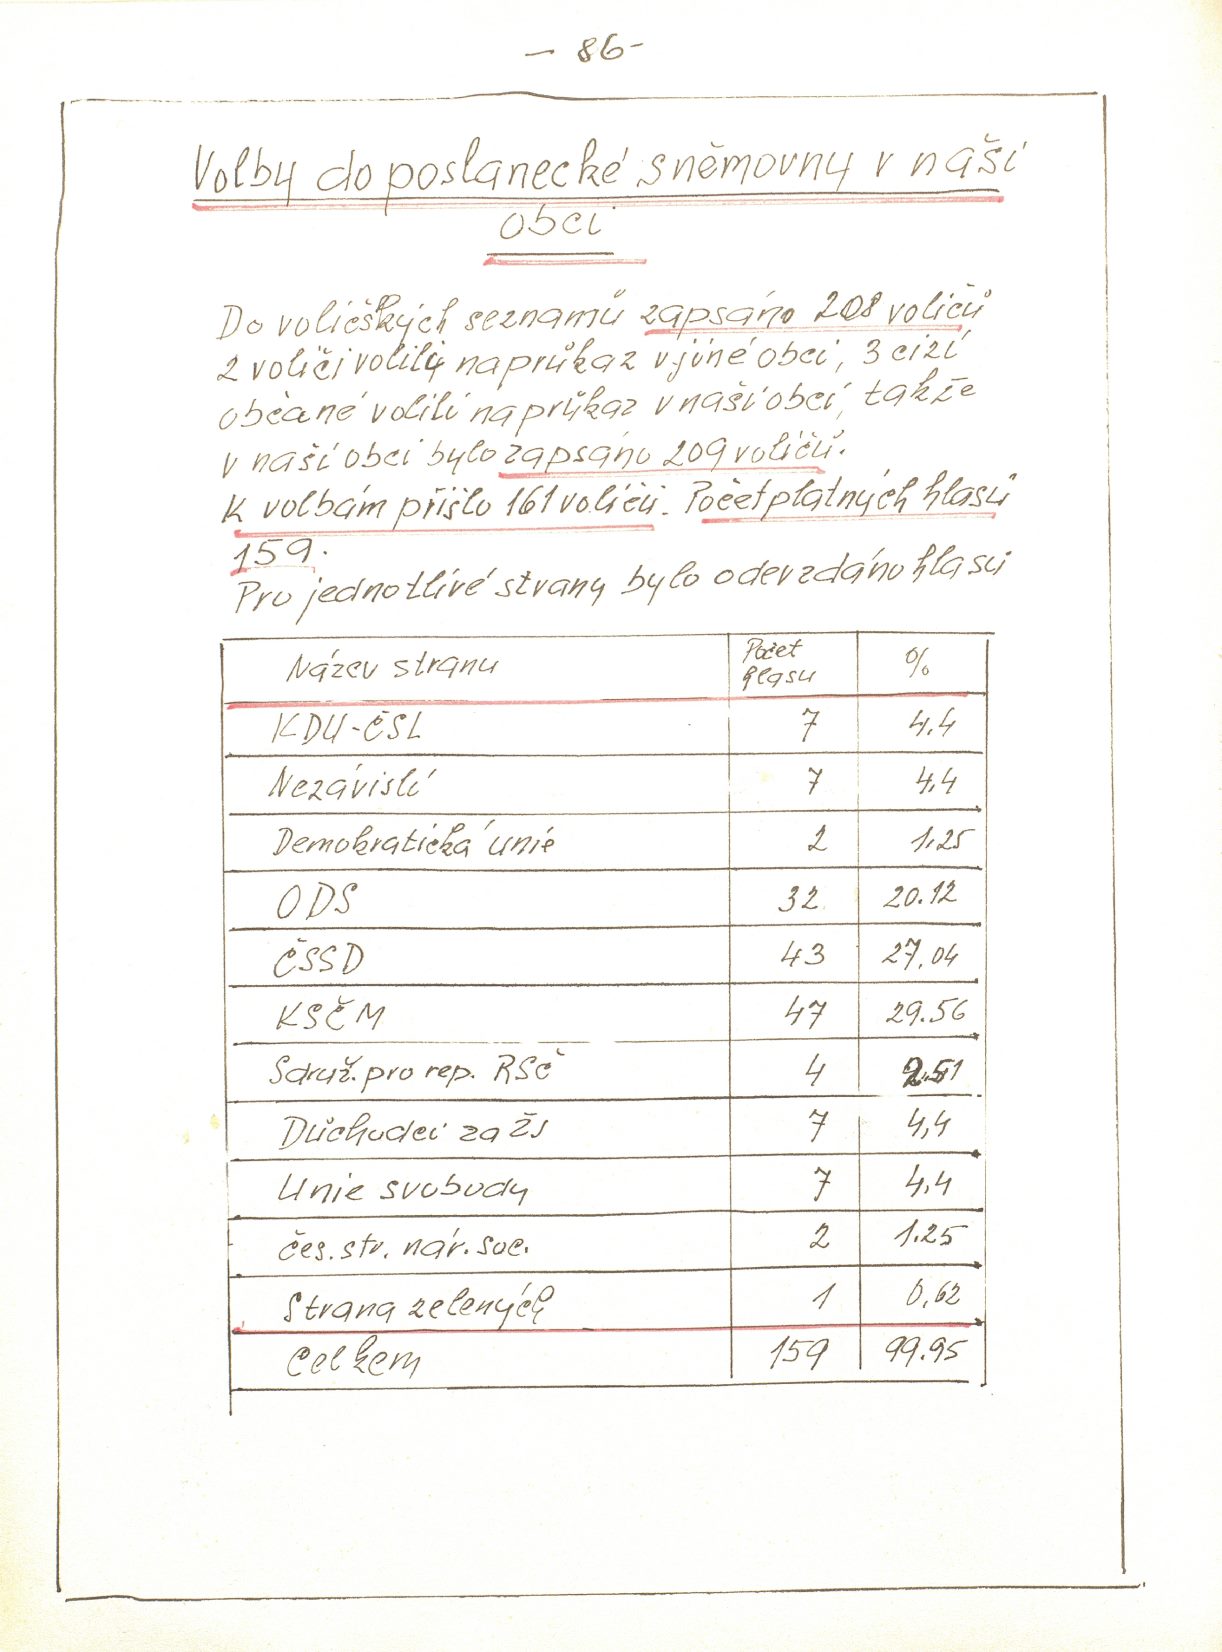 - 86 -
Volby do poslanecké sněmovny v naší
obci
Do voličských seznamů zapsáno 208 voličů
2 voliči volily na průkaz v jiné obci, 3 cizí
občané volili na průkaz v naší obci, takže
v naší obci bylo zapsáno 209 voličů.
K volbám přišlo 161 voličů. Počet platných hlasů
159.
Pro jednotlivé strany bylo odevzdáno hlasů
Název stranu Počet hlasu %
KDU-ČSL 7 4,4
Nezávislí 7 4,4
Demokratická unie 2 1.25
ODS 32 20.12
ČSSD 43 27,04
KSČM 47 29.56
Sdruž. pro rep. RSČ 4 2.51
Důchodci za ŽJ 7 4,4
Unie svobody 7 4,4
Čes. str. nár. soc. 2 1.25
Strana zelených 1 0,62
Celkem 159 99.95